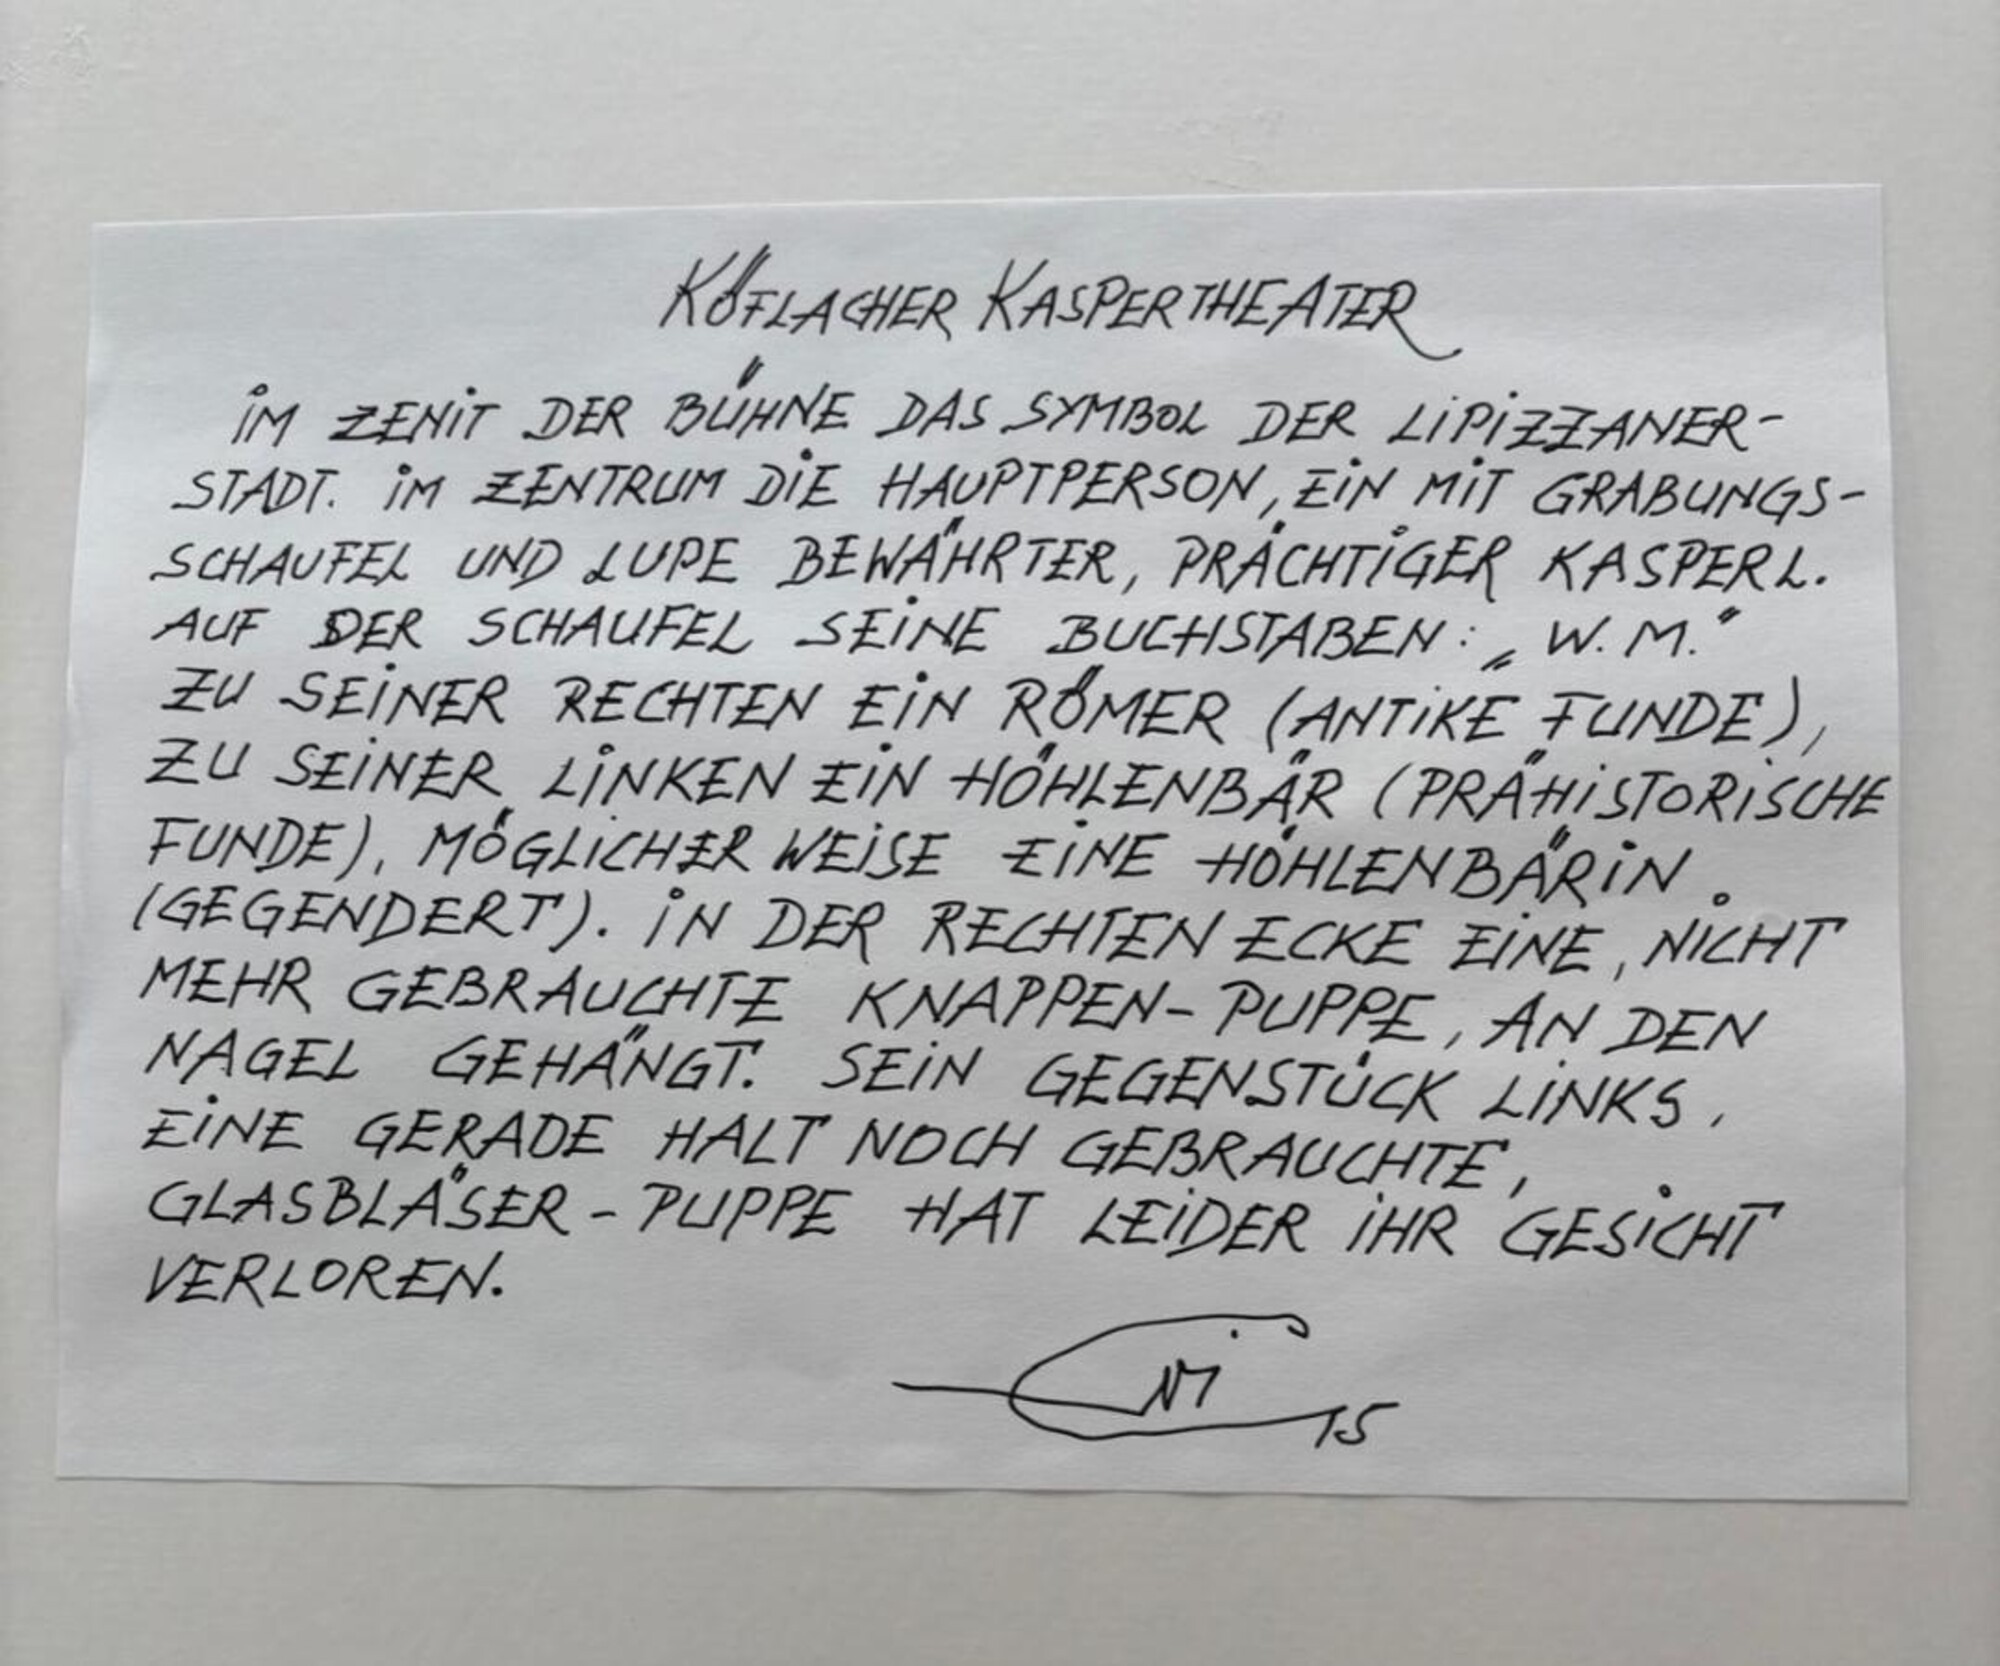 KÖFLACHER KASPERTHEATER
IM ZENIT DER BÜHNE DAS SYMBOL DER LIPIZZANER-
STADT. IM ZENTRUM DIE HAUPTPERSON, EIN MIT GRABUNGS-
SCHAUFEL UND LUPE BEWÄHRTER, PRÄCHTIGER KASPERL.
AUF DER SCHAUFEL SEINE BUCHSTABEN: „W. M.“
ZU SEINER RECHTEN EIN RÖMER (ANTIKE FUNDE),
ZU SEINER LINKEN EIN HÖHLENBÄR (PRÄHISTORISCHE
FUNDE), MÖGLICHER WEISE EINE HÖHLENBÄRIN.
(GEGENDERT). IN DER RECHTEN ECKE EINE, NICHT
MEHR GEBRAUCHTE KNAPPEN-PUPPE, AN DEN
NAGEL GEHÄNGT. SEIN GEGENSTÜCK LINKS,
EINE GERADE HALT NOCH GEBRAUCHTE,
GLASBLÄSER-PUPPE HAT LEIDER IHR GESICHT
VERLOREN.
15